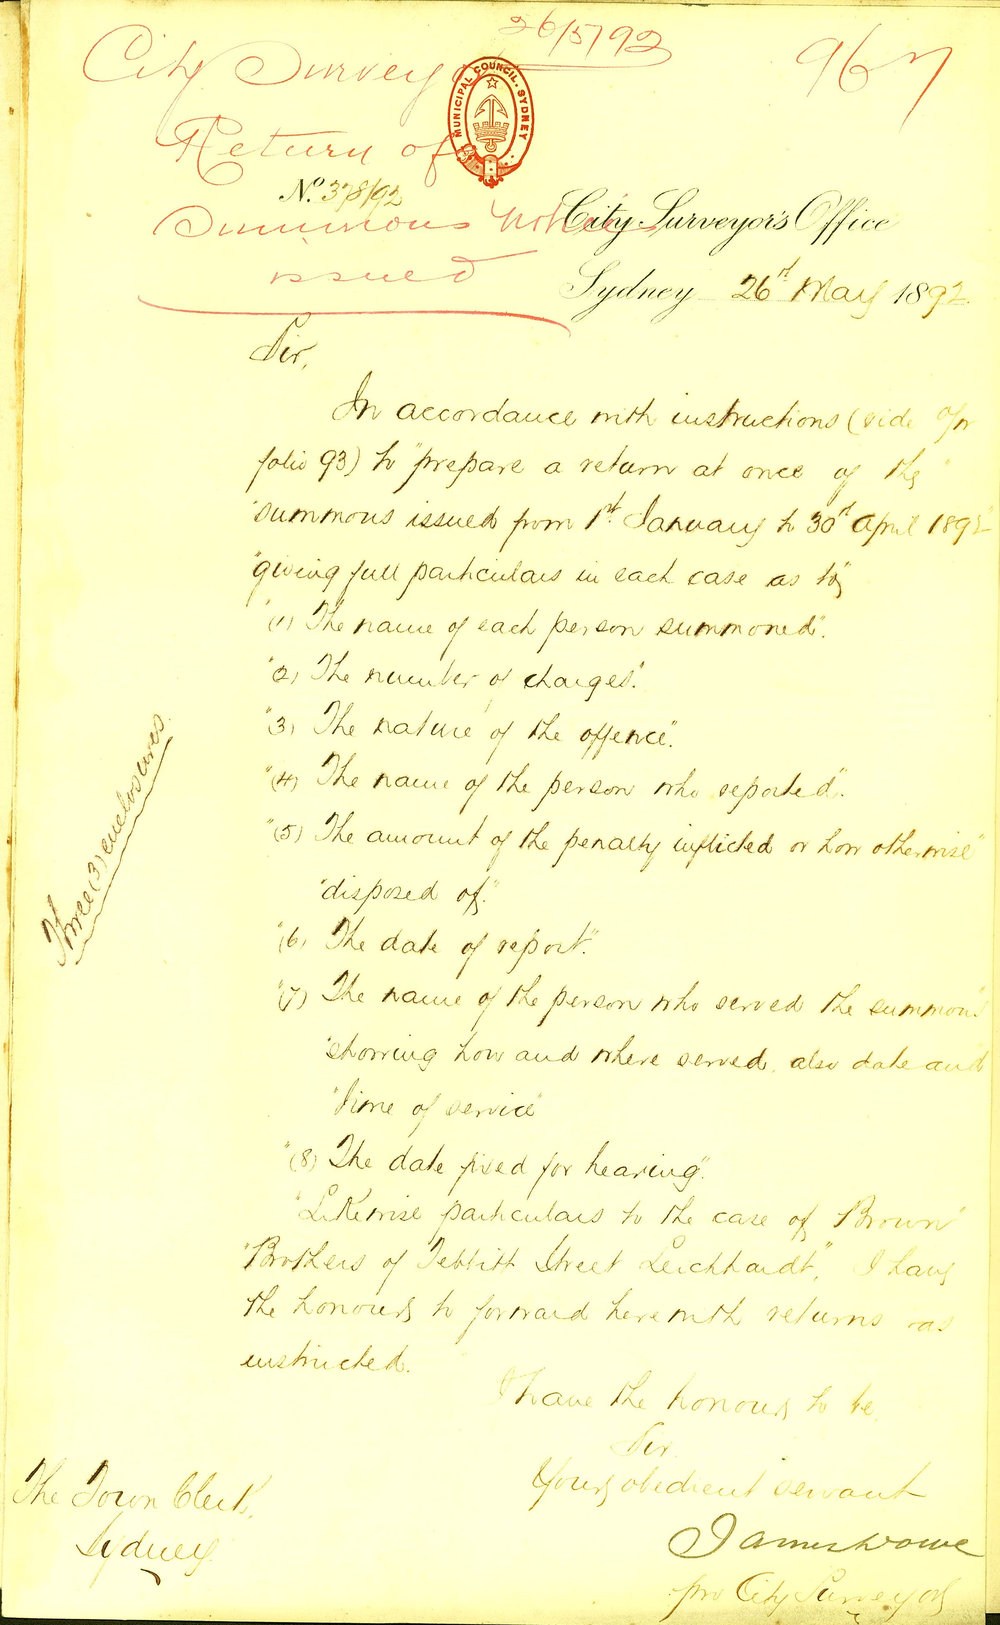 26/5/92
967
City Surveyor
MUNICIPAL COUNCIL. SYDNEY
Return of
No. 378/92
Summons Notices
City Surveyor's Office
issued
Sydney 26th May 1892
Sir,
In accordance with instructions (vide
folio 93) to "prepare a return at once of the"
"summons issued from 1st January to 30th April 1892"
"giving full particulars in each case as to"
"(1) The name of each person summoned".
"(2) The number of charges".
"(3) The nature of the offence".
"(4) The name of the person who reported".
"(5) The amount of the penalty inflicted or how otherwise"
"disposed of".
"(6) The date of report".
"(7) The name of the person who served the summons"
"showing how and where served, also date and
"time of service"
"(8) The date fixed for hearing".
"Likewise particulars to the case of Brown"
"Brothers of Tebbitt Street Leichhardt", I have
the honour to forward herewith returns as
instructed.
Three (3) enclosures.
I have the honour to be
Sir
Your obedient servant
James Dowe
pro City Surveyor
The Town Clerk,
Sydney